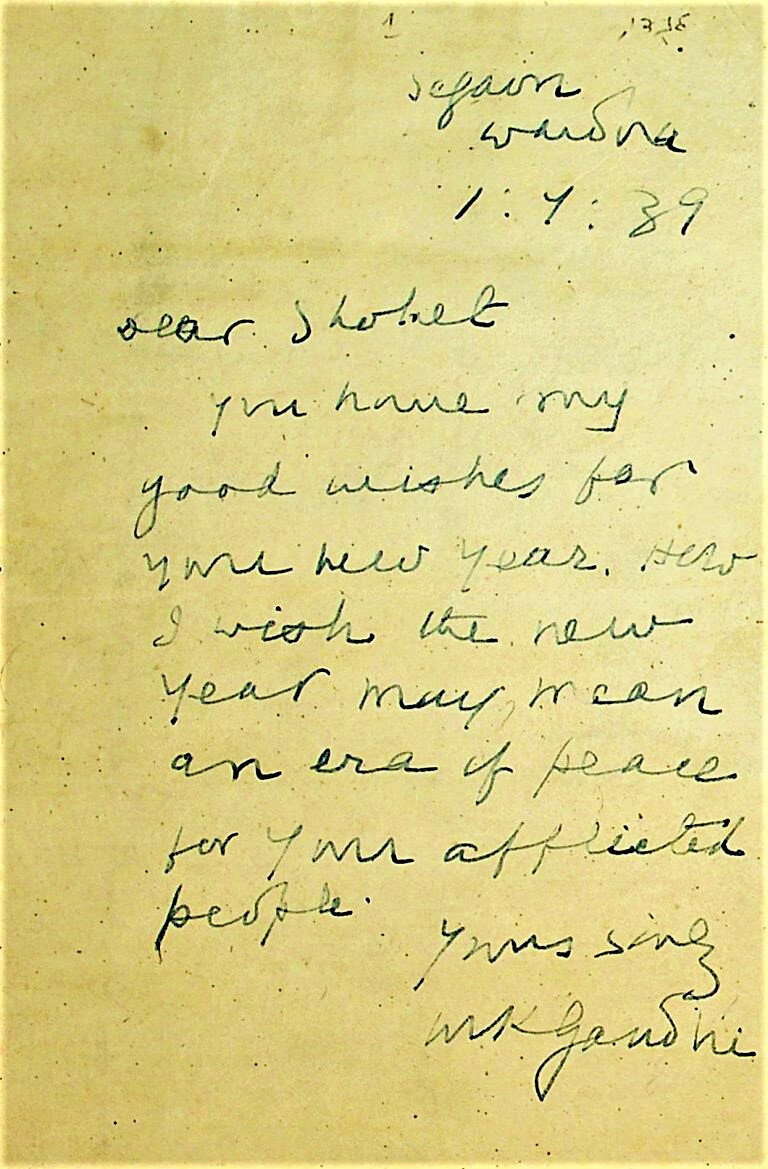 1
Segaon
Wardha
1 : 9 : 39
Dear Shohet
You have my
good wishes for
your new year. How
I wish the new
year may mean
an era of peace
for your afflicted
people.
Yours
MKGandhi